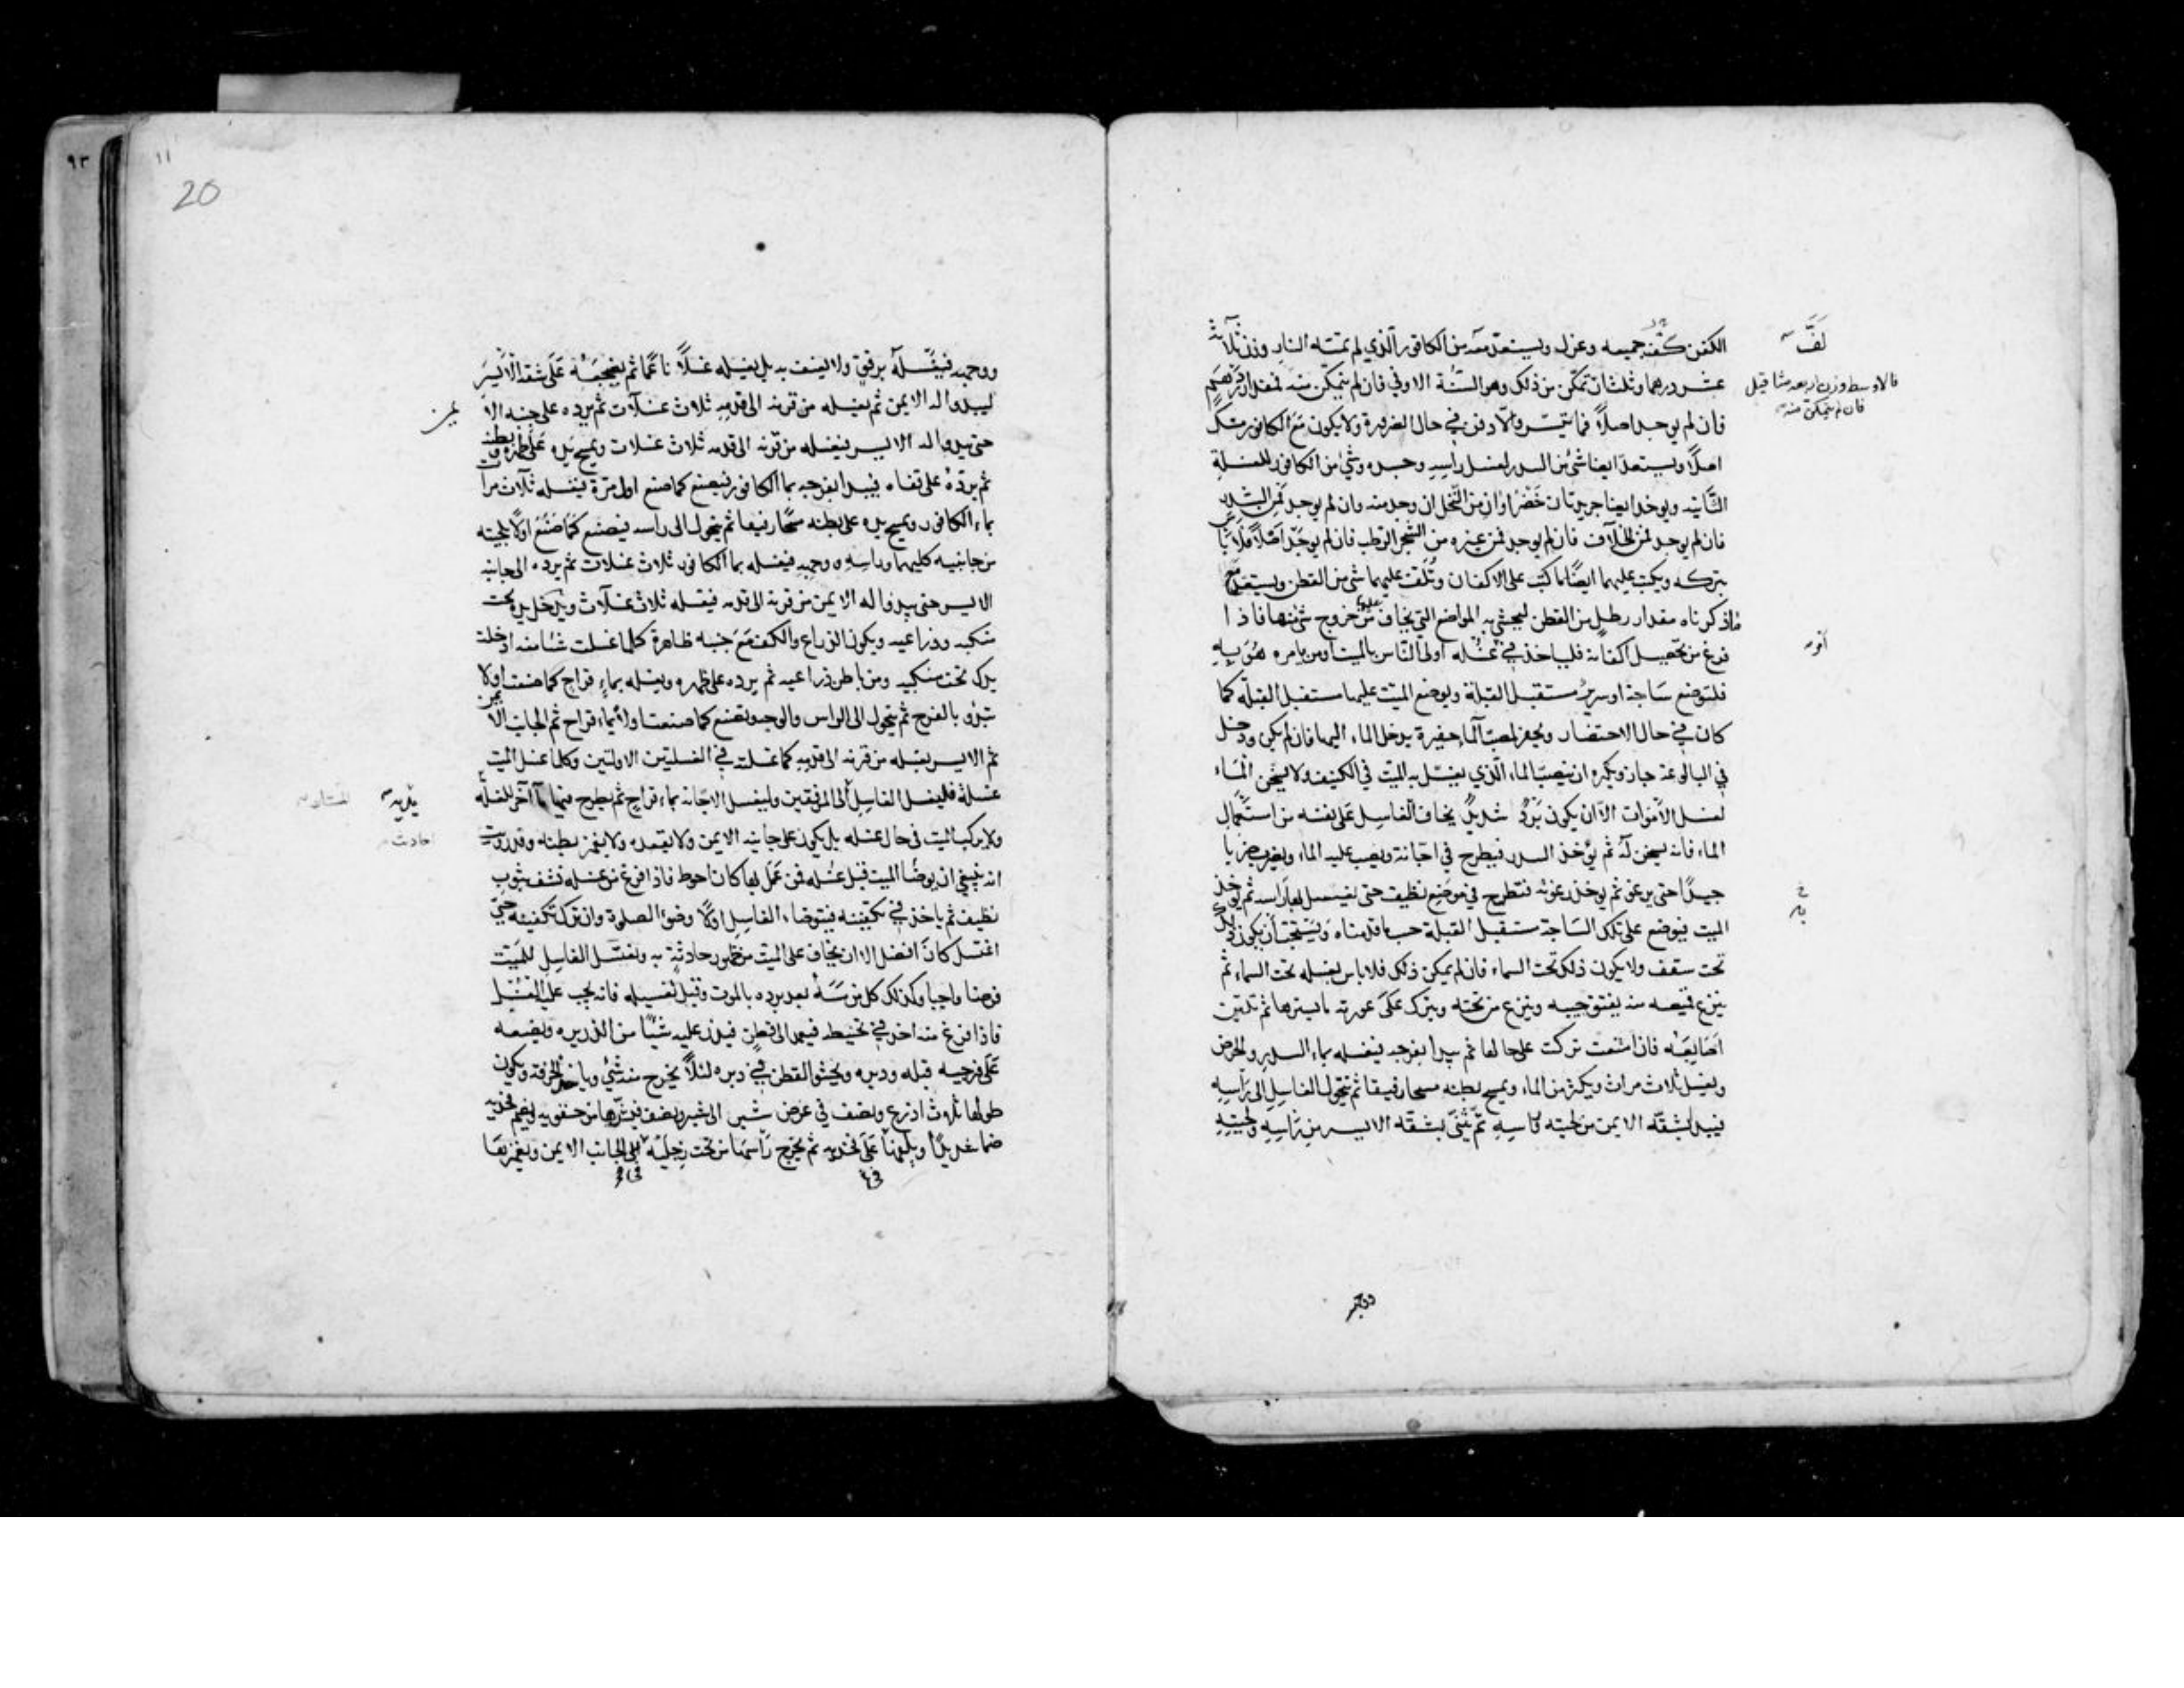 الكفن لفّ جميعه وعزل ويستعدّ معه من الكافور الّذي لم تمسّه النار وزن ثلاثة
عشر درهما وثلث ان تمكّن من ذلك وهو السّنّة الاوفى فان لم يتمكّن منه فمقدار درهم
فان لم يوجد اصلاً فما تيسّر والّا دفن في حال الضرورة ولا يكون مع الكافور مسك
اصلاً ويستعدّ ايضا شئ من السدر لغسل راسه وجسده وشئ من الكافور للغسلة
الثّانية ويوخذ ايضا جريدتان خضراوان من النّخل ان وجد منه وان لم يوجد فمن السّدر
فان لم يوجد فمن الخلاف فان لم يوجد فمن غيره من الشجر الرّطب فان لم يوجد اصلاً فلا باس
بتركه ويكتب عليهما ايضًا ما كتب على الاكفان وتُلفّ عليهما شئ من القطن ويستعدّ مع
ما ذكرناه مقدار رطل من القطن ليحشى به المواضع التي يخاف من خروج شئ منها فاذا
فرغ من تحصيل اكفانه فلياخذ في غسله اولى النّاس بالميت او من يامره هو به
فلتوضع ساجة او سرير مستقبل القبلة ويوضع الميّت عليها مستقبل القبلة كما
كان في حال الاحتضار ويُحفر لمصبّ الماء حفيرة يدخل الماء اليها فان لم يكن ودخل
في البالوعة جاز ويكره ان يصبّ الماء الّذي يغسّل به الميّت في الكنيف ولا يسخن الماء
لغسل الاموات الّا ان يكون بردٌ شديدٌ يخاف الغاسل على نفسه من استعمال
الماء فانه يسخن له ثم يؤخذ السدر فيطرح في اجّانة ويصب عليه الماء ويضرب ضربا
جيدًا حتى يرغو ثم يوخذ رغوته فتطرح في موضع نظيف حتى يغسل بها راسه ثم يؤخذ
الميت فيوضع على تلك السّاجة مستقبل القبلة حسب ما قدمناه ويستحبّ ان يكون ذلك
تحت سقف ولا يكون ذلك تحت السماء فان لم يمكن ذلك فلا باس بغسله تحت السماء ثم
ينزع قميصه منه بفتق جيبه وينزع من تحته ويترك على عورته ما يسترها ثم تليّن
اصابعه فان امتنعت تركت على حالها ثم يبدأ بفرجه فيغسله بماء السدر والحرض
ويغسل ثلاث مرات ويكثر من الماء ويمسح بطنه مسحا رفيقا ثم يتحول الغاسل الى راسه
فيبدأ بشقّه الايمن من لحيته وراسه ثمّ يثنّى بشقّه الايسر من راسه ولحيته
لفّ
فالاوسط وزن اربعه مثاقيل
فان لم يتمكن منه
ووجهه
20
١١
٩٣
ووجهه فيغسّله برفق ولا يعنف به بل يغسله غسلاً ناعمًا ثم يضجعه على شقه الايسر
ليبدو له الايمن ثم يغسله من قرنه الى قدميه ثلاث غسلات ثم يرده على جنبه الا
يمن
حتى يبدو له الايسر فيغسله من قرنه الى قدمه ثلاث غسلات ويمسح يده على ظهره وبطنه
ثم يردّه على قفاه فيبدأ بفرجه بماء الكافور فيصنع كما صنع اول مرّة يغسله ثلاث مرات
بماء الكافور ويمسح يده على بطنه مسحًا رفيقا ثم يتحول الى راسه فيصنع كما صنع اولًا بلحيته
من جانبيه كليهما وراسه ووجهه فيغسله بماء الكافور ثلاث غسلات ثم يرده الى جانبه
الايسر حتى يبدو له الايمن من قرنه الى قدمه فيغسله ثلاث غسلات ويدخل يده تحت
منكبيه وذراعيه ويكون الذراع والكف مع جنبه ظاهرة كلما غسلت شيئا منه ادخلت
يدك تحت منكبيه ومن باطن ذراعيه ثم يرده على ظهره ويغسله بماء قراح كما صنعت اولا
تبدؤ بالفرج ثم يتحول الى الراس والوجه ويصنع كما صنعت اولًا بماء قراح ثم الجانب الايمن
ثم الايسر يغسله من قرنه الى قدميه كما غسلته في الغسلتين الاولتين وكلما غسل الميت
غسلة فليغسل الغاسل الى المرفقين وليغسل الاجّانة بماء قراح ثم يطرح فيها ماءً آخر للغسلة
ولا يركب الميت في حال غسله بل يكون على جانبه الايمن ولا يقعده ولا يغمز بطنه وقد رويت
انه ينبغي ان يوضّأ الميت قبل غسله فمن عمل بها كان احوط فاذا فرغ من غسله نشفه بثوب
نظيف ثم ياخذ في تكفينه فيتوضاء الغاسل اولًا وضوء الصلوة وان ترك تكفينه حتى
اغتسل كان افضل الا ان يخاف على الميت من ظهور حادثة به وغسل الغاسل للميت
فرضا واجبا وكذلك كل من مسّه بعد برده بالموت وقبل تغسيله فانه يجب عليه الغسل
فاذا فرغ منه اخذ في تحنيطه فيعمد الى قطن فيذرّ عليه شيئًا من الذريره ويضعه
على فرجيه قبله ودبره ويحشو القطن في دبره لئلّا يخرج منه شئ وياخذ الخرقة ويكون
طولها ثلاث اذرع ونصف في عرض شبر الى شبر ونصف فيشدّها من حقويه ويضمّ فخذيه
ضمّا شديدًا ويلفّها على فخذيه ثم يخرج راسها من تحت رجليه الى الجانب الايمن ويغمزها
يديه